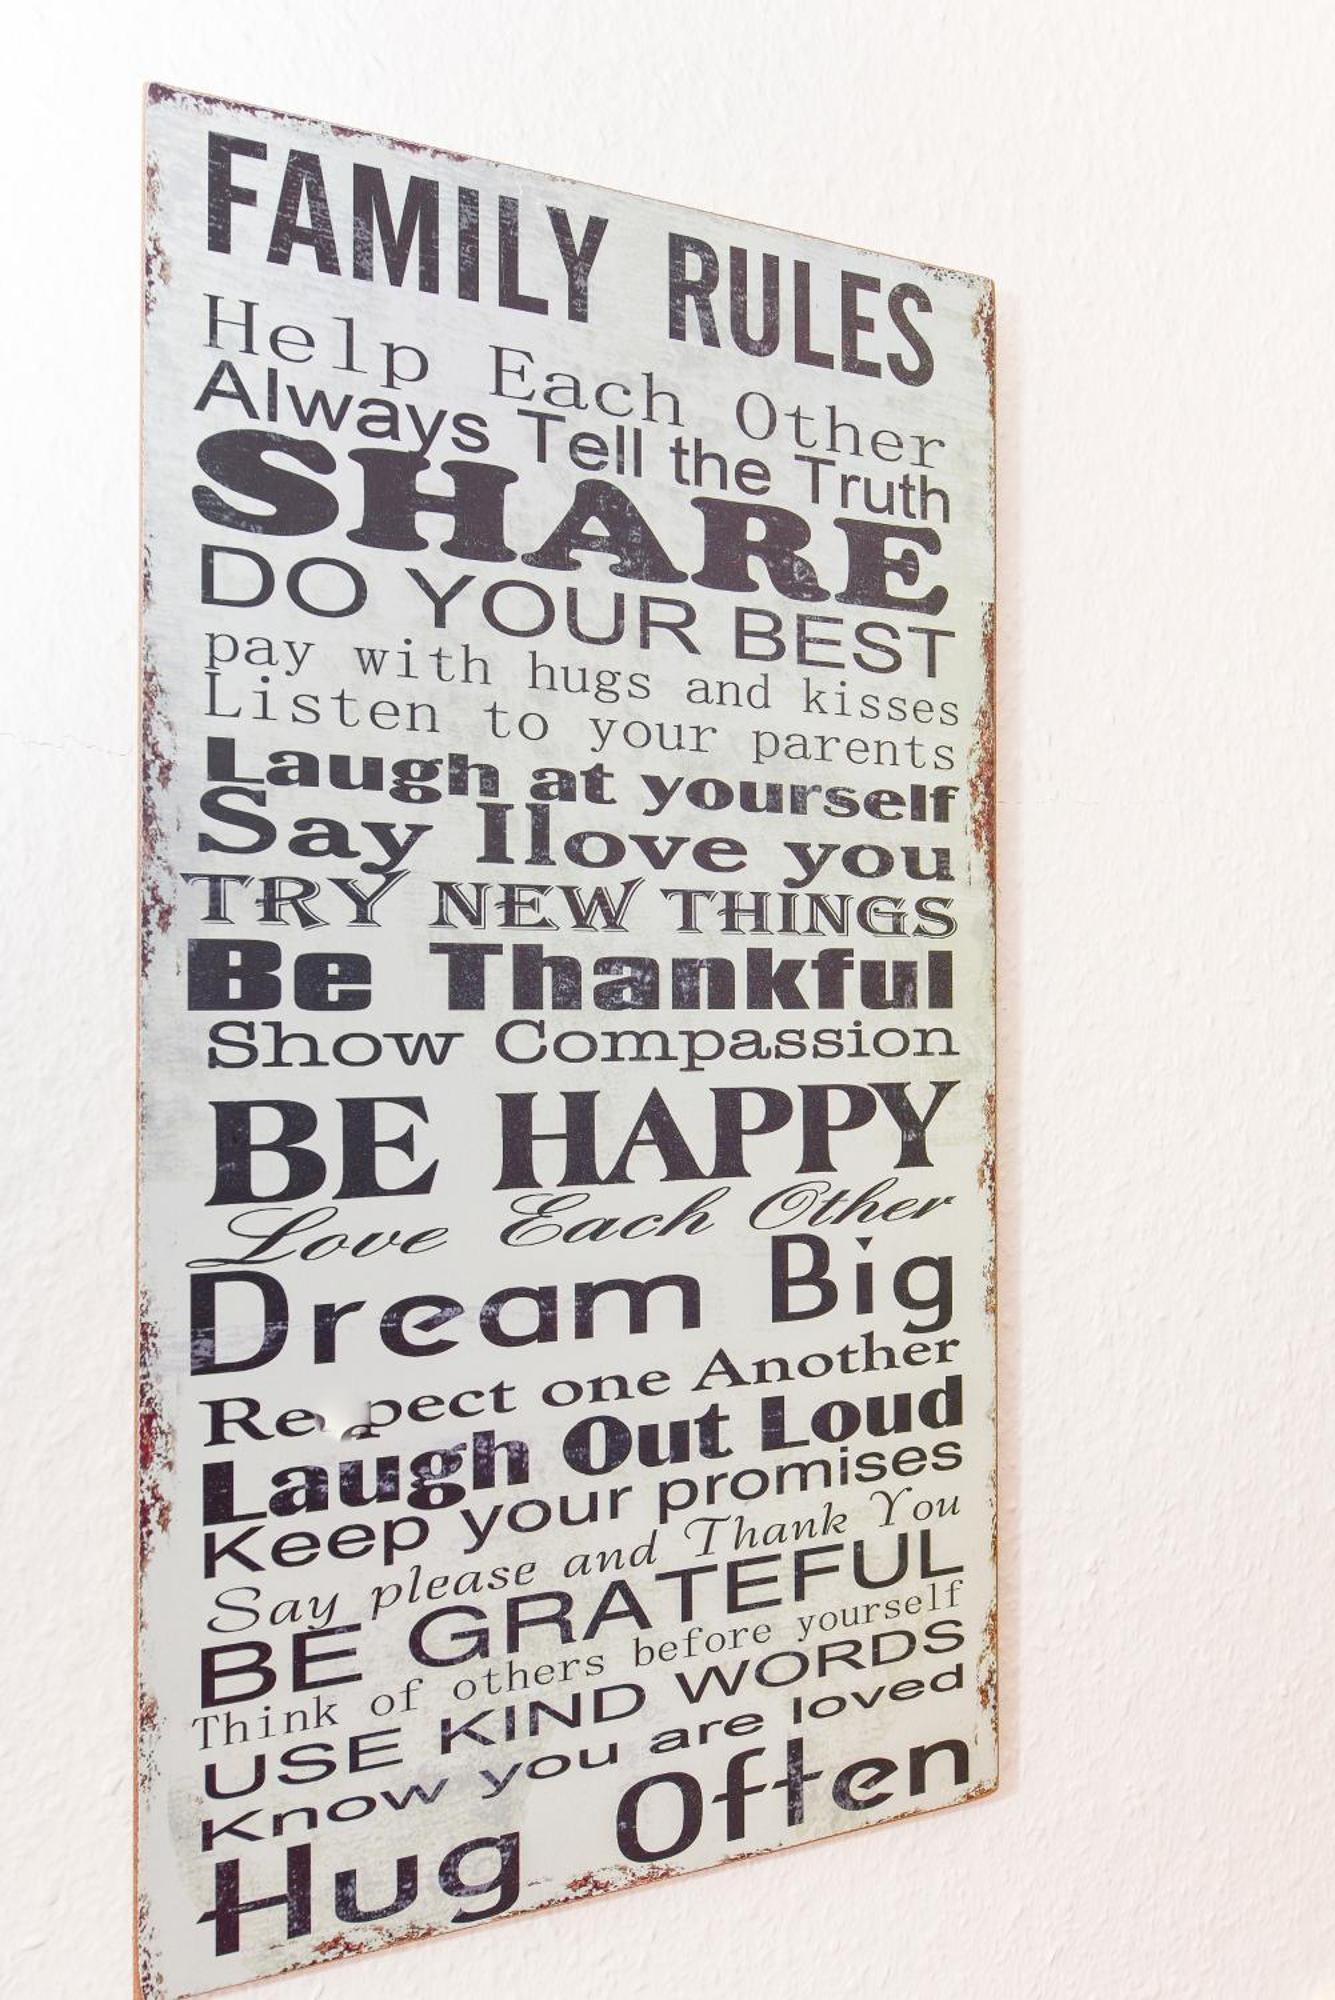 FAMILY RULES
Help Each Other
Always Tell the Truth
SHARE
DO YOUR BEST
pay with hugs and kisses
Listen to your parents
Laugh at yourself
Say Ilove you
TRY NEW THINGS
Be Thankful
Show Compassion
BE HAPPY
Love Each Other
Dream Big
one Another
Laugh Out Loud
Keep your promises
Say please and Thank You
BE GRATEFUL
Think of others before yourself
USE KIND WORDS
Know you are loved
Hug Often